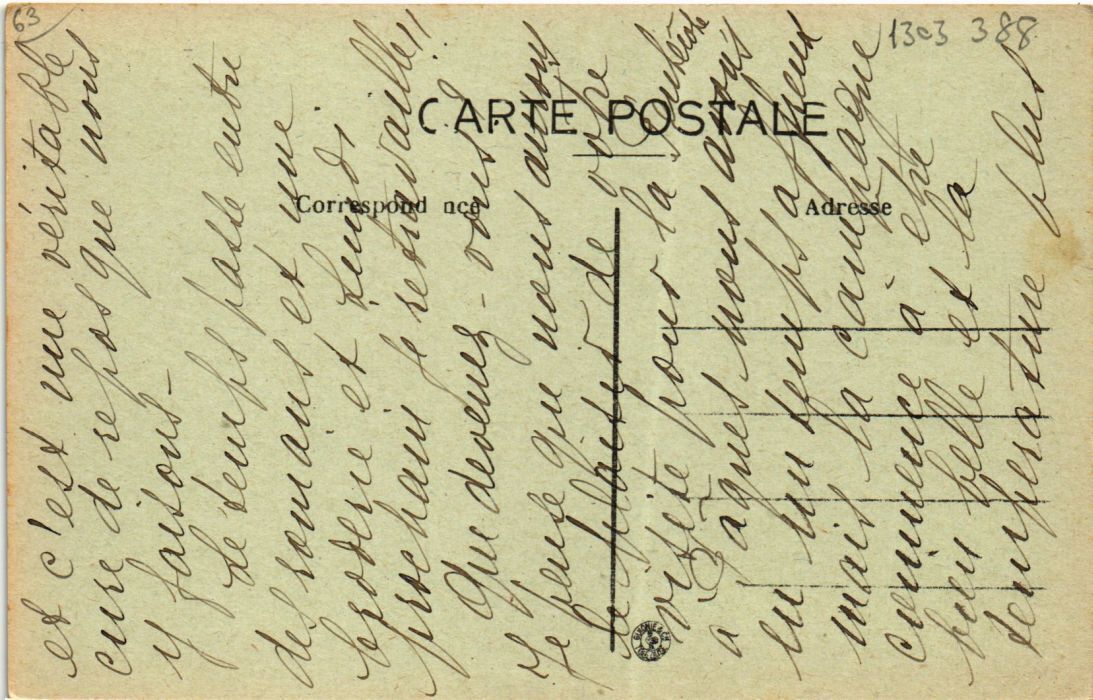 63
1303 388
CARTE POSTALE
Correspond nce
Adresse
et c'est une véritable
cure de repos que nous
y faisons -
Le temps passe entre
des romans et une
broderie et Lundi
prochain je retravaille!!
Que devenez - vous?
Je pense que nous aurons
le plaisir de votre
visite pour la Pentecôte
à Pâques nous avons
eu un temps affreux
mais la campagne
commence à être
bien belle et la
température plus